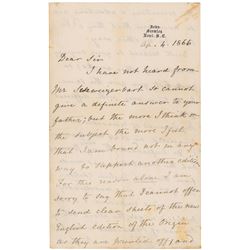 Down
Bromley
Kent. S.E.
Ap. 4. 1866
Dear Sir
I have not heard from
Mr Schweizerbart so cannot
give a definite answer to your
father; but the more I think on
the subject the more I feel
that I am bound not in any
way to support another edition
For this reason alone I am
sorry to say that I cannot offer
to send clear sheets of the new
English edition of the Origin
as they are printed off; and